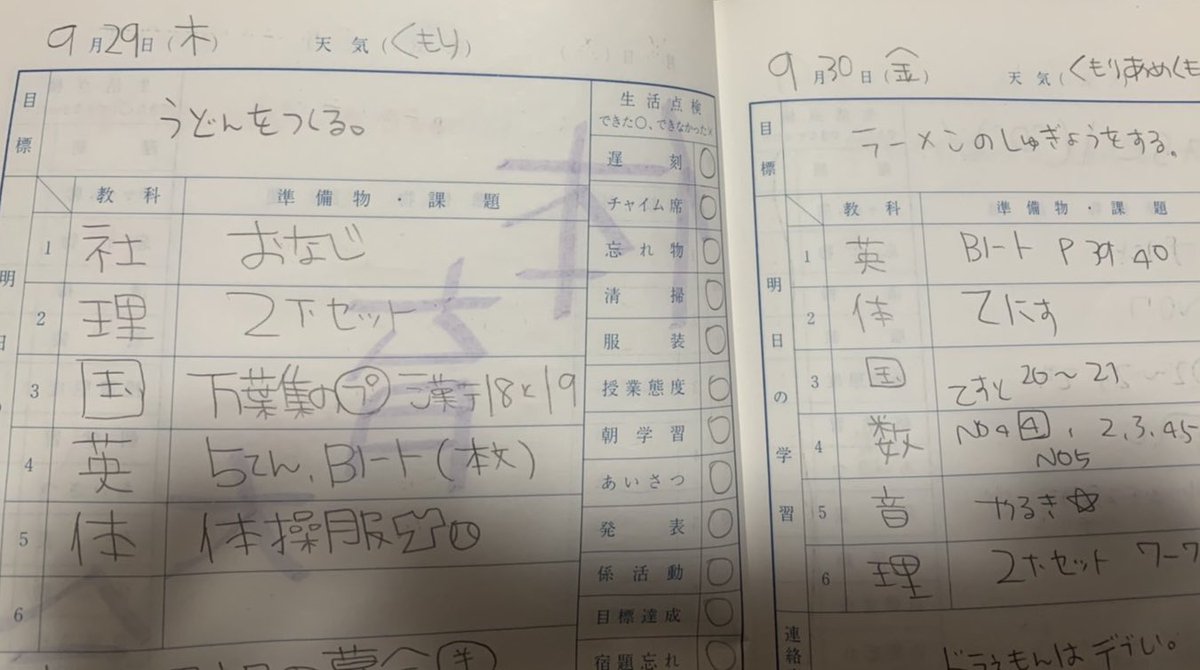 9月29日(木) 天気(くもり)
目標 うどんをつくる。
生活点検
できた○、できなかった×
遅刻 ○
チャイム席 ○
忘れ物 ○
清掃 ○
服装 ○
授業態度 ○
朝学習 ○
あいさつ ○
発表 ○
係活動 ○
目標達成 ○
宿題忘れ
教科 準備物・課題
明日
1 社 おなじ
2 理 2下セット
3 国 万葉集のプ 漢字18と19
4 英 5てん、Bノート(本文)
5 体 体操服
6
9月30日(金) 天気(くもりあめくも
目標 ラーメンのしゅぎょうをする。
教科 準備物・課題
明日の学習
1 英 Bノート P39 40
2 体 てにす
3 国 てすと 20〜21
4 数 No4 4, 2.3.45
No5
5 音 やるき☆
6 理 2下セット 7-7
連絡 ドラえもんはデラい。